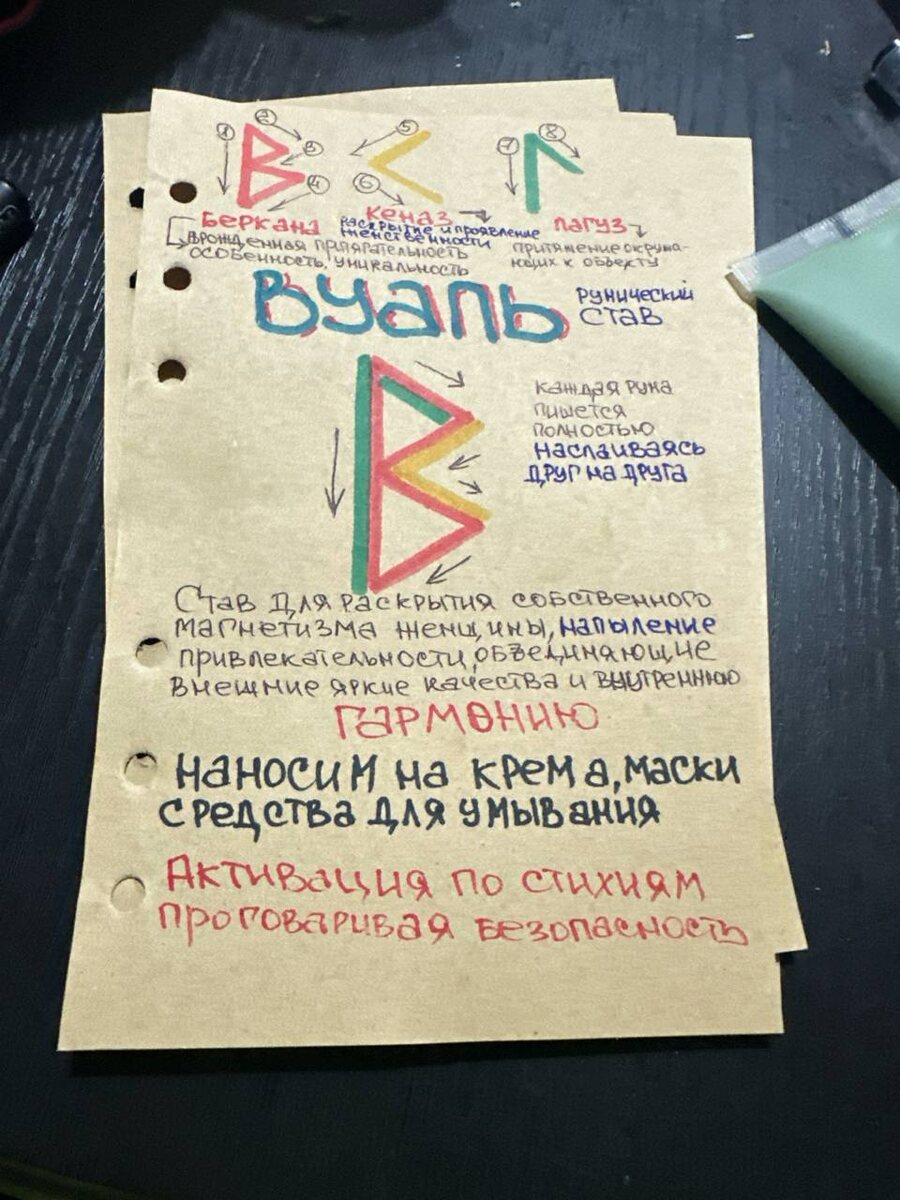 1 2 3 4 5 6 7 8
Беркана
Кеназ
Лагуз
врожденная
особенность, уникальность
раскрытие и проявление
женственности
притяжение окружа-
ющих к объекту
Вуаль
рунический
став
каждая руна
пишется
полностью
наслаиваясь
друг на друга
Став для раскрытия собственного
магнетизма женщины, напыление
привлекательности, объединяющие
внешние яркие качества и внутреннюю
гармонию
наносим на крема, маски
средства для умывания
Активация по стихиям
проговаривая безопасность